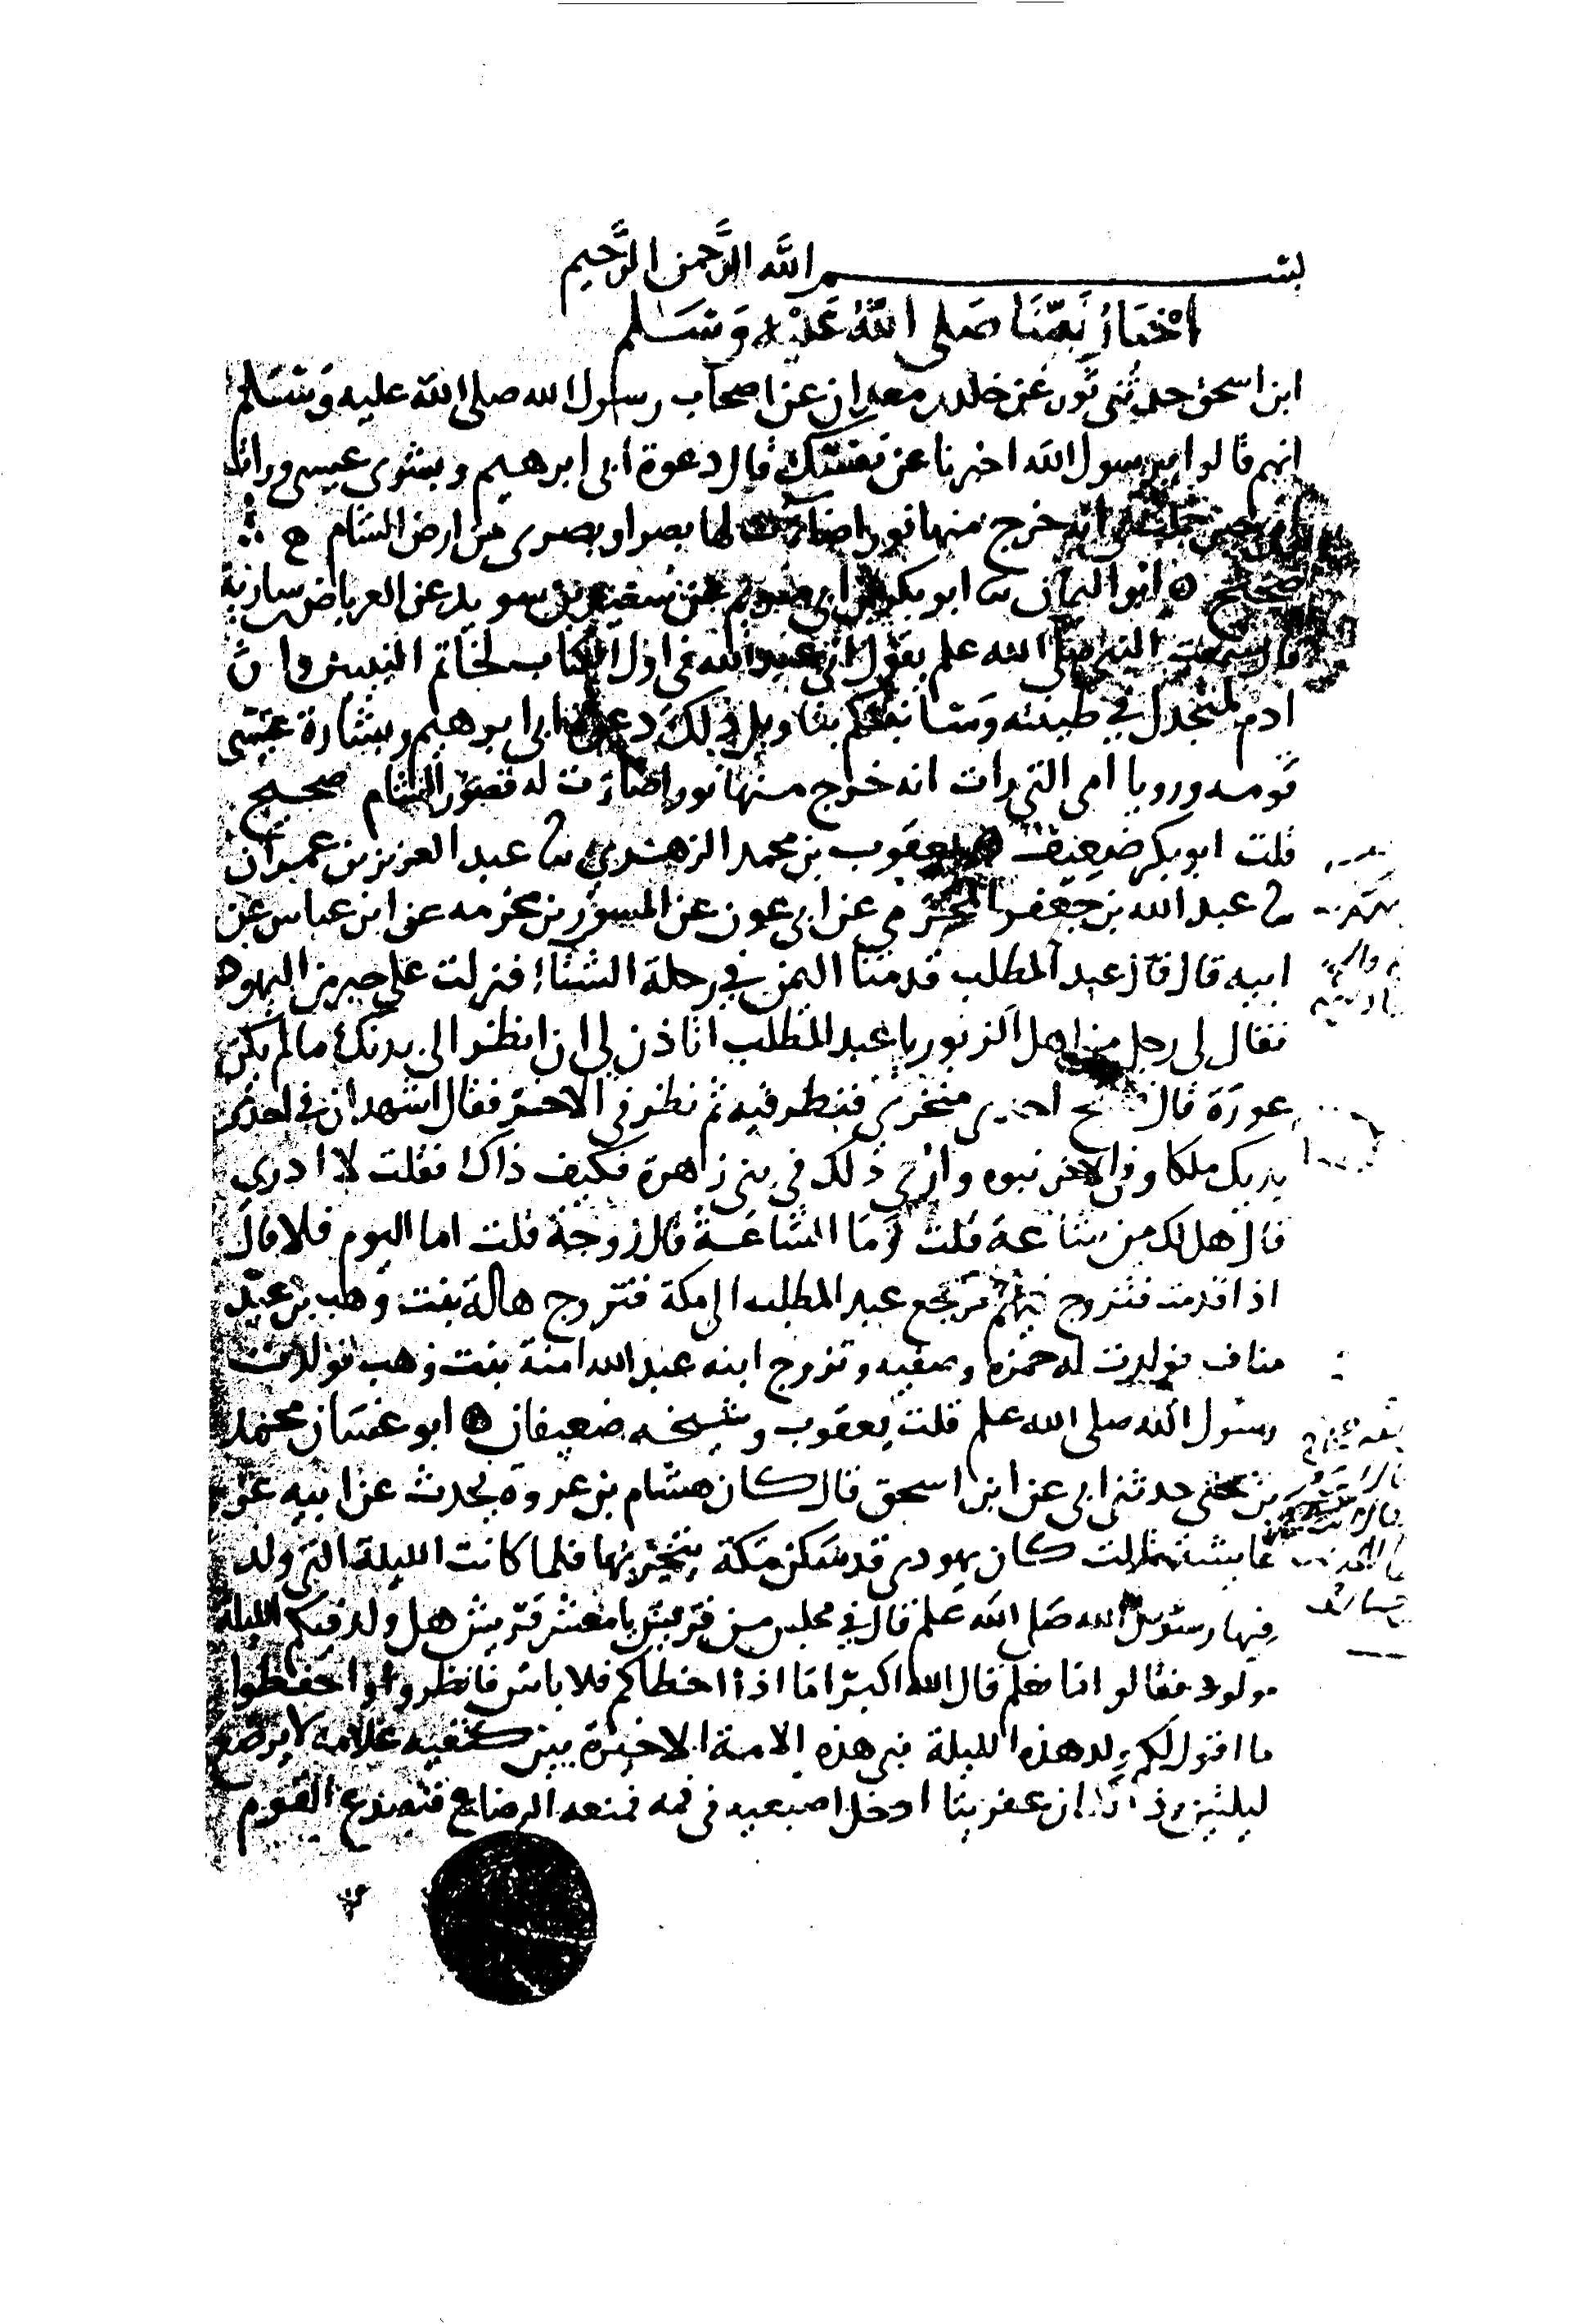 بسم الله الرحمن الرحيم
اخبار نبينا صلى الله عليه وسلم
ابن اسحق حدثني ثور عن خلد بن معدان عن اصحاب رسول الله صلى الله عليه وسلم
انهم قالوا يرسول الله اخبرنا عن نفسك قال دعوة ابي ابرهيم وبشرى عيسى ورات
امي حين حملت بي انه خرج منها نور اضات لها بصرا وبصرى من ارض الشام
صحيح ابو اليمان ثنا ابو بكر بن ابي مريم عن سعيد بن سويد عن العرباض بن سارية
قال سمعت النبي صلى الله علم يقول اني عبد الله في اول الكتاب لخاتم النبيين وان
ادم لمنجدل في طينته وسانبئكم بتاويل ذلك دعوة ابي ابرهيم وبشارة عيسى
قومه ورويا امي التي رات انه خرج منها نور اضاءت له قصور الشام صحيح
قلت ابو بكر ضعيف يعقوب بن محمد الزهري ثنا عبد العزيز بن عمران
ثنا عبد الله بن جعفر المخرمي عن ابي عون عن المسور بن مخرمه عن ابن عباس عن
ابيه قال قال عبد المطلب قدمنا اليمن في رحلة الشتا فنزلت على حبر من اليهود
فقال لي رجل من اهل الزبور يا عبد المطلب اتاذن لي ان انظر الى بدنك ما لم يكن
عورة قال احدى منخري فنظر فيه ثم نظر في الاخر فقال اشهد ان في احدى
يديك ملكا وفي الاخر نبوه وارى ذلك في بني زهرة فكيف ذاك فقلت لا ادري
قال هل لك من شاعة قلت وما الشاعة قال زوجة قلت اما اليوم فلا قال
اذا قدمت فتزوج فيهم فرجع عبد المطلب الى مكة فتزوج هالة بنت وهب بن عبد
مناف فولدت له حمزه وصفيه وتزوج ابنه عبد الله امنة بنت وهب فولدت
رسول الله صلى الله علم قلت يعقوب وشيخه ضعيفان ابو غسان محمد
بن يحيى حدثني ابي عن ابن اسحق قال كان هشام بن عروه يحدث عن ابيه عن
عايشة قالت كان يهودي قد سكن مكة يتجر بها فلما كانت الليلة التي ولد
فيها رسول الله صلى الله علم قال في مجلس من قريش يا معشر قريش هل ولد فيكم الليلة
مولود فقالوا ما نعلم قال الله اكبر اما اذا اخطاكم فلا باس فانظروا واحفظوا
ما اقول لكم ولد هذه الليلة نبي هذه الامة الاخيرة بين كتفيه علامه لا يرضع
ليلتين وذ ان عفريتا ادخل اصبعيه في فمه فمنعه الرضاع فتصدع القوم